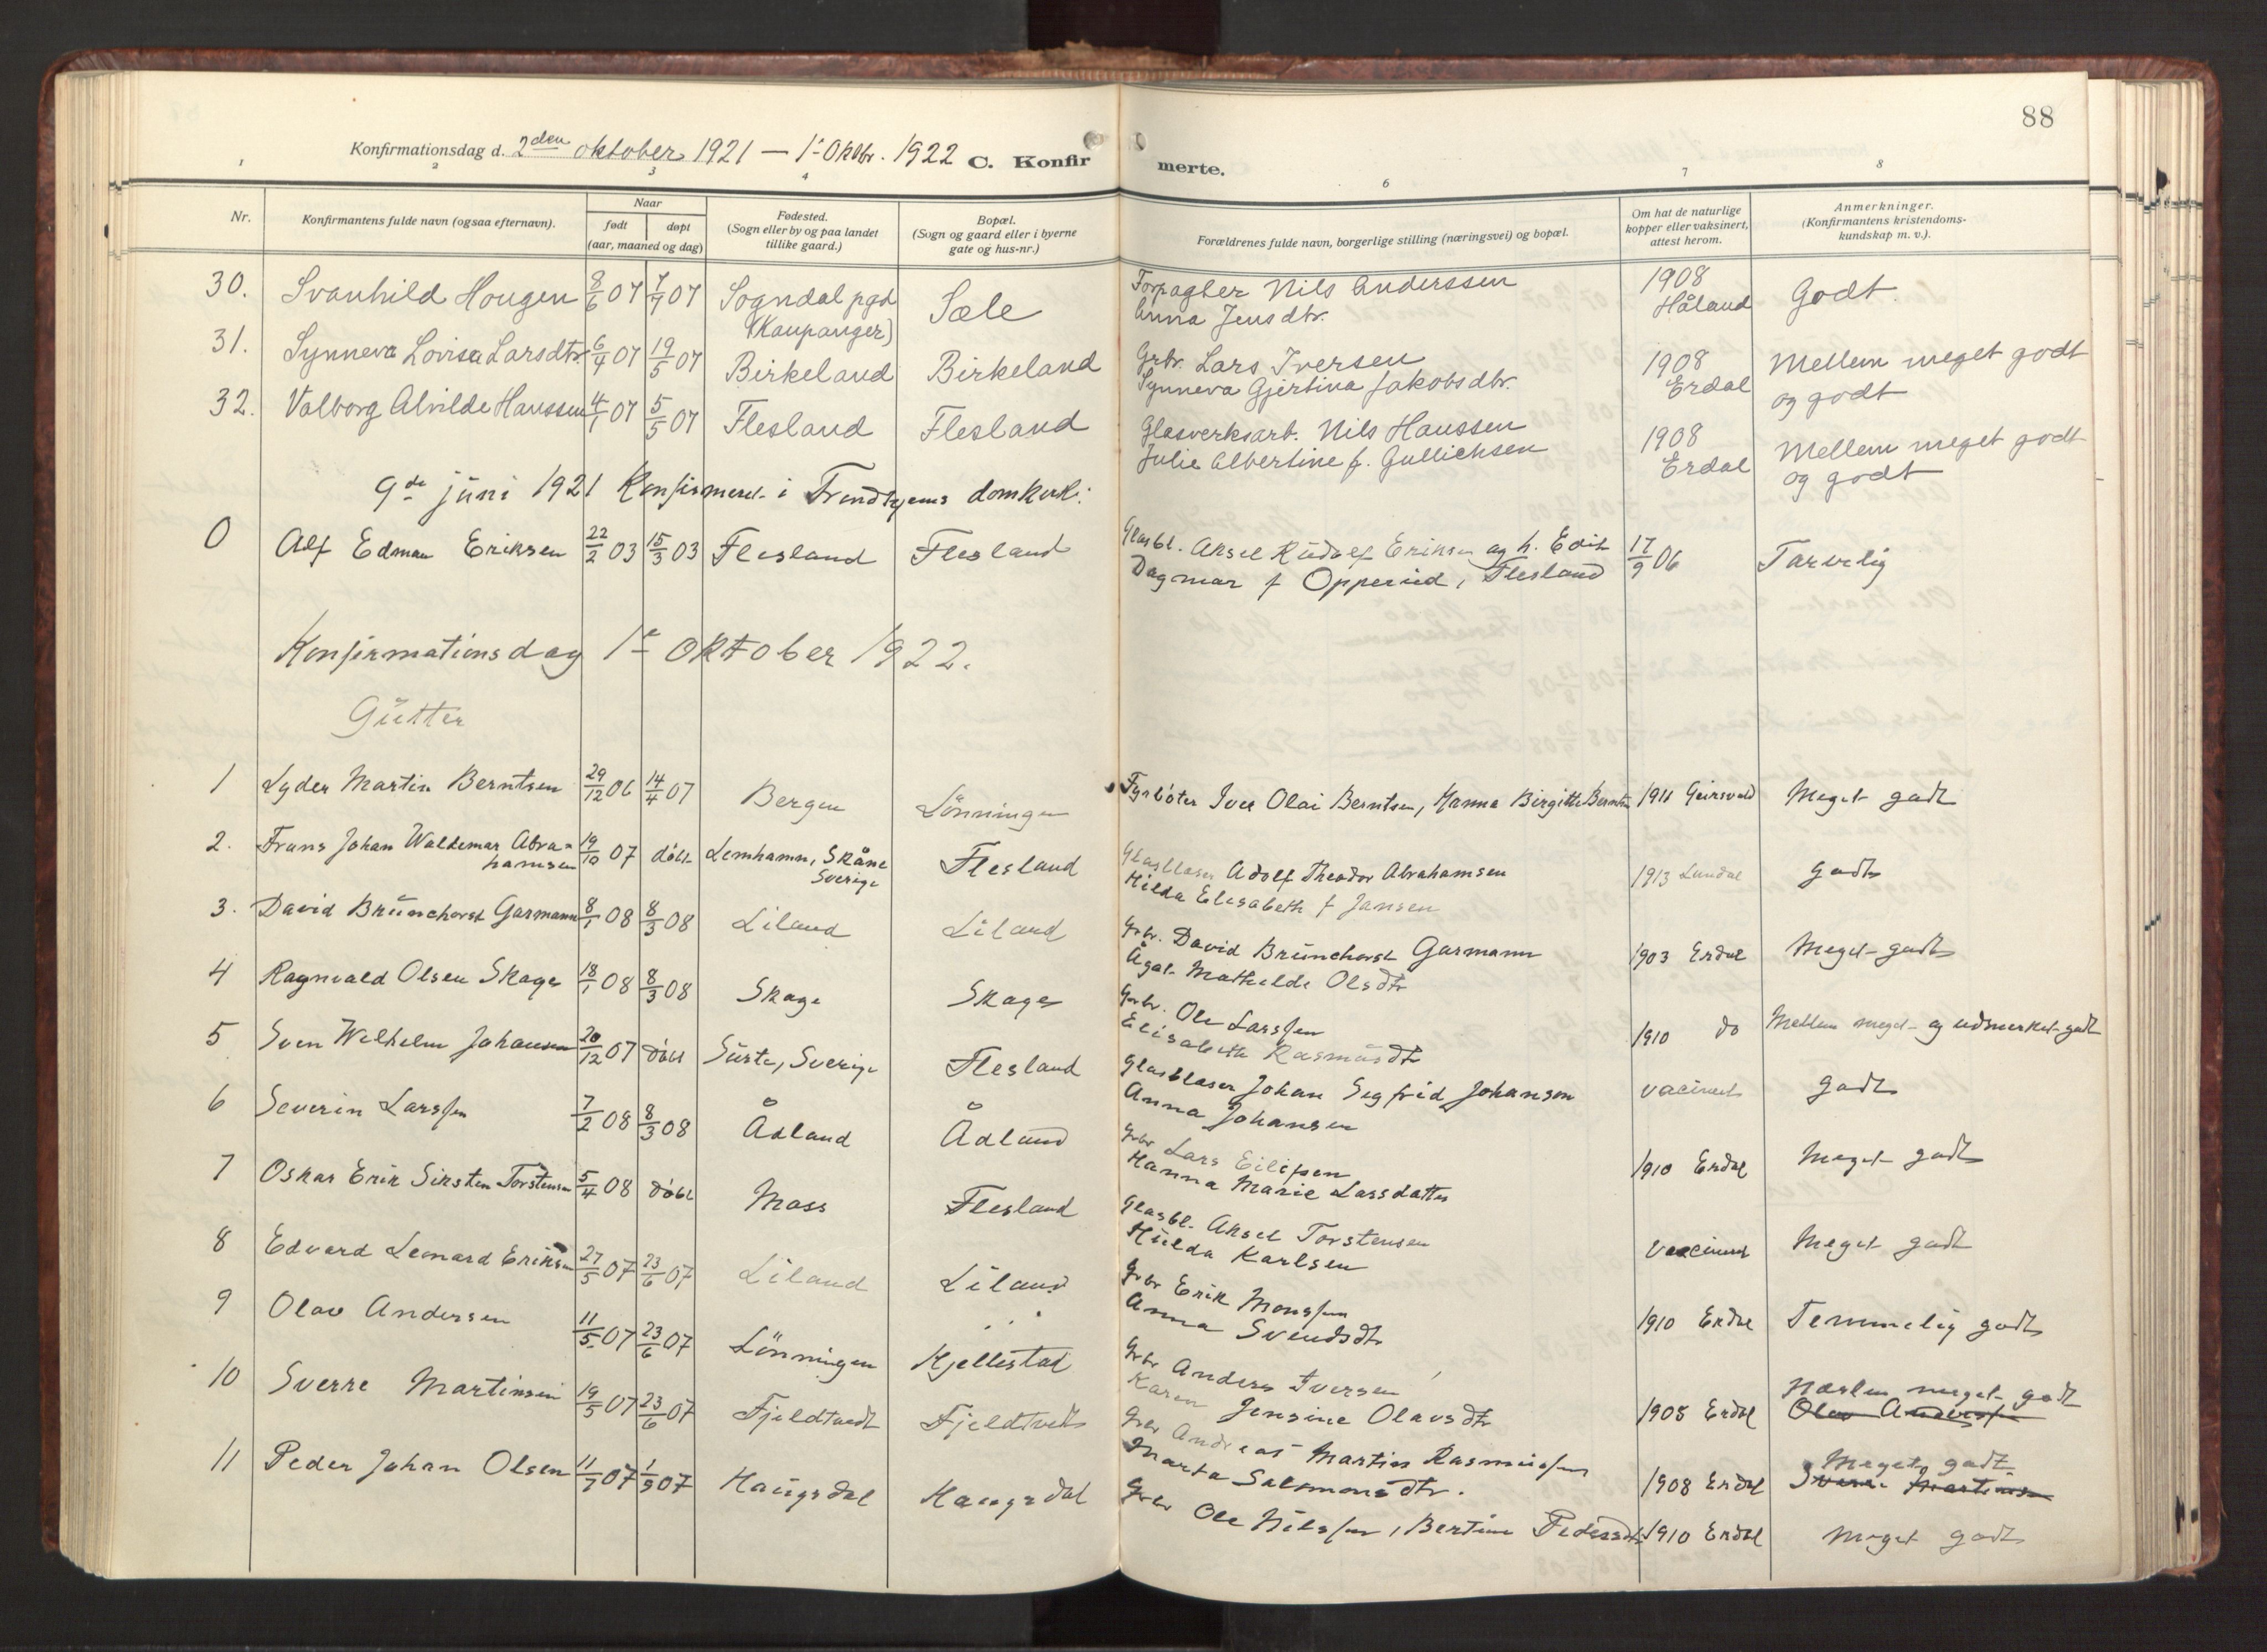 88
Konfirmationsdag d. 2den oktober 1921 — 1ste Oktbr. 1922 C. Konfirmerte.
1 2 3 4 6 7 8
Nr. Konfirmantens fulde navn (ogsaa efternavn). Naar født døpt (aar, maaned og dag) Fødested. (Sogn eller by og paa landet tillike gaard.) Bopæl. (Sogn og gaard eller i byerne gate og hus-nr.) Forældrenes fulde navn, borgerlige stilling (næringsvei) og bopæl. Om hat de naturlige kopper eller vaksinert, attest herom. Anmerkninger. (Konfirmantens kristendoms-kundskap m. v.).
30. Svanhild Hougen 8/6 07 7/7 07 Sogndal pgd (Kaupanger) Sæle Forpagter Nils Anderssen Anna Jensdtr. 1908 Håland Godt.
31. Synneva Lovisa Larsdtr. 6/4 07 19/5 07 Birkeland Birkeland Grbr. Lars Iversen Synneva Gjertina Jakobsdtr. 1908 Erdal Mellem meget godt og godt
32. Valborg Alvilde Hanssen 4/1 07 5/5 07 Flesland Flesland Glasverksarb. Nils Hanssen Julie Albertine f. Gullichsen 1908 Erdal Mellem meget godt og godt
9de juni 1921 Konfirmeret i Trondhjems domkirk:
0 Alf Edman Eriksen 22/2 03 15/3 03 Flesland Flesland Glasbl. Aksel Rudolf Eriksen og h. Edit Dagmar f Opperud, Flesland 17/9 06 Tarvelig
Konfirmationsdag 1ste oktober 1922.
Gutter
1 Lyder Martin Berntsen 29/12 06 14/4 07 Bergen Lønningen Fyrbøter Iver Olai Berntsen, Hanna Birgitte Berntsen 1911 Meget godt
2. Frans Johan Waldemar Abrahamsen 19/10 07 døbt Lemhamn, Skåne Sverige Flesland Glasblaser Adolf Theodor Abrahamsen Hilda Elisabeth f Jansen 1913 Lundal godt
3. David Brünchorst Garmann 8/1 08 8/3 08 Liland Liland Grbr. David Brünchorst Garmann Ågat Mathilde Olsdtr 1903 Erdal Meget godt
4 Ragnvald Olsen Skage 18/1 08 8/3 08 Skage Skage Grbr. Ole Larssen Elisabeth Rasmusdtr 1910 do Mellem meget og udmerket godt
5 Sven Wilhelm Johansen 20/12 07 døbt Surte, Sverige Flesland Glasblaser Johan Segfrid Johansen Anna Johansen vacineret godt
6 Severin Larssen 7/2 08 8/3 08 Ådland Ådland Grbr Lars Eilifsen Hanna Marie Larsdatter 1910 Erdal Meget godt
7 Oskar Erik Sixsten Torstensen 5/4 08 døbt Moss Flesland Glasbl. Aksel Torstensen Hulda Karlsen vaccineret Meget godt
8 Edvard Leonard Eriksen 27/5 07 23/6 07 Liland Liland Grbr Erik Monssen Anna Svendsdtr 1910 Erdal Temmelig godt
9 Olav Andersen 11/5 07 23/6 07 Lönningen Hjellestad Grbr Anders Iversen Karen Jensine Olavsdtr 1908 Erdal Næsten meget godt Olav Anderssen
10 Sverre Martinsen 19/5 07 23/6 07 Fjeldtvedt Fjeldtvedt Grbr Andreas Martin Rasmussen Marta Salomonsdtr. 1908 Erdal Meget godt. Sverre Martinsen
11 Peder Johan Olsen 11/7 07 1/9 07 Haugsdal Haugsdal Grbr Ole Nilssen, Bertine Pedersdtr 1910 Erdal Meget godt